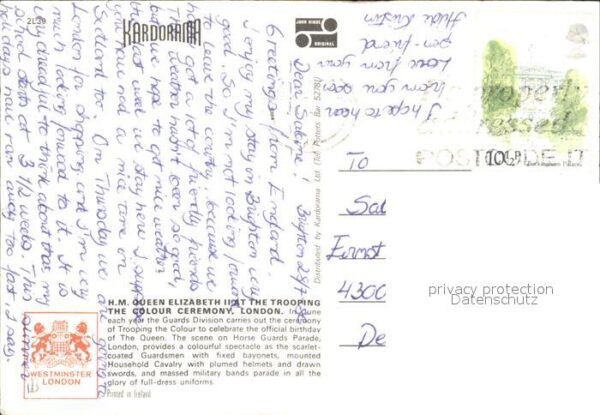 2L39
KARDORAMA
JOHN HINDE
ORIGINAL
Dear Sabine! Brighton 24/7
Greetings from England.
I enjoy my stay in Brighton very
good. So I'm not looking forward
to leave the country, because we
have got a lot of friendly friends
The weather hasn't been so good,
but we hope to get nice weather
next week we stay here. I suppose
you have had a nice time in
Scotland too. On Thursday we are going to
London for shopping and I'm very
much looking forward to it. It is
very dreadful to think about that my
school starts at 3 1/2 weeks. This summer
holidays have run away too fast, I say.
I hope to hear
from you soon
Love from your
pen-friend
Distributed by Kardorama Ltd. (Tel Potters Bar 52781)
H.M. QUEEN ELIZABETH II AT THE TROOPING
THE COLOUR CEREMONY, LONDON. In June
each year the Guards Division carries out the ceremony
of Trooping the Colour to celebrate the official birthday
of The Queen. The scene on Horse Guards Parade,
London, provides a colourful spectacle as the scarlet-
coated Guardsmen with fixed bayonets, mounted
Household Cavalry with plumed helmets and drawn
swords, and massed military bands parade in all the
glory of full-dress uniforms.
Printed in Ireland
WESTMINSTER
LONDON
properly
addressed
POSTCODE IT
10½P
Buckingham Palace
To
Sab
Ernst
4300
De
privacy protection
Datenschutz